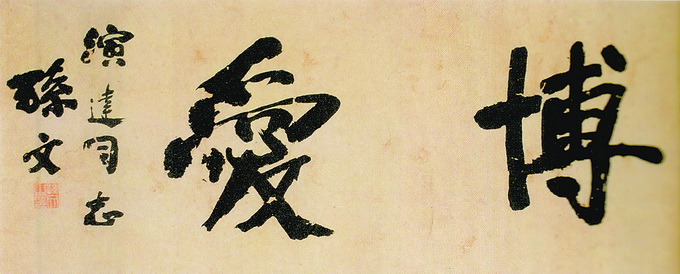 博愛
演達同志
孫文